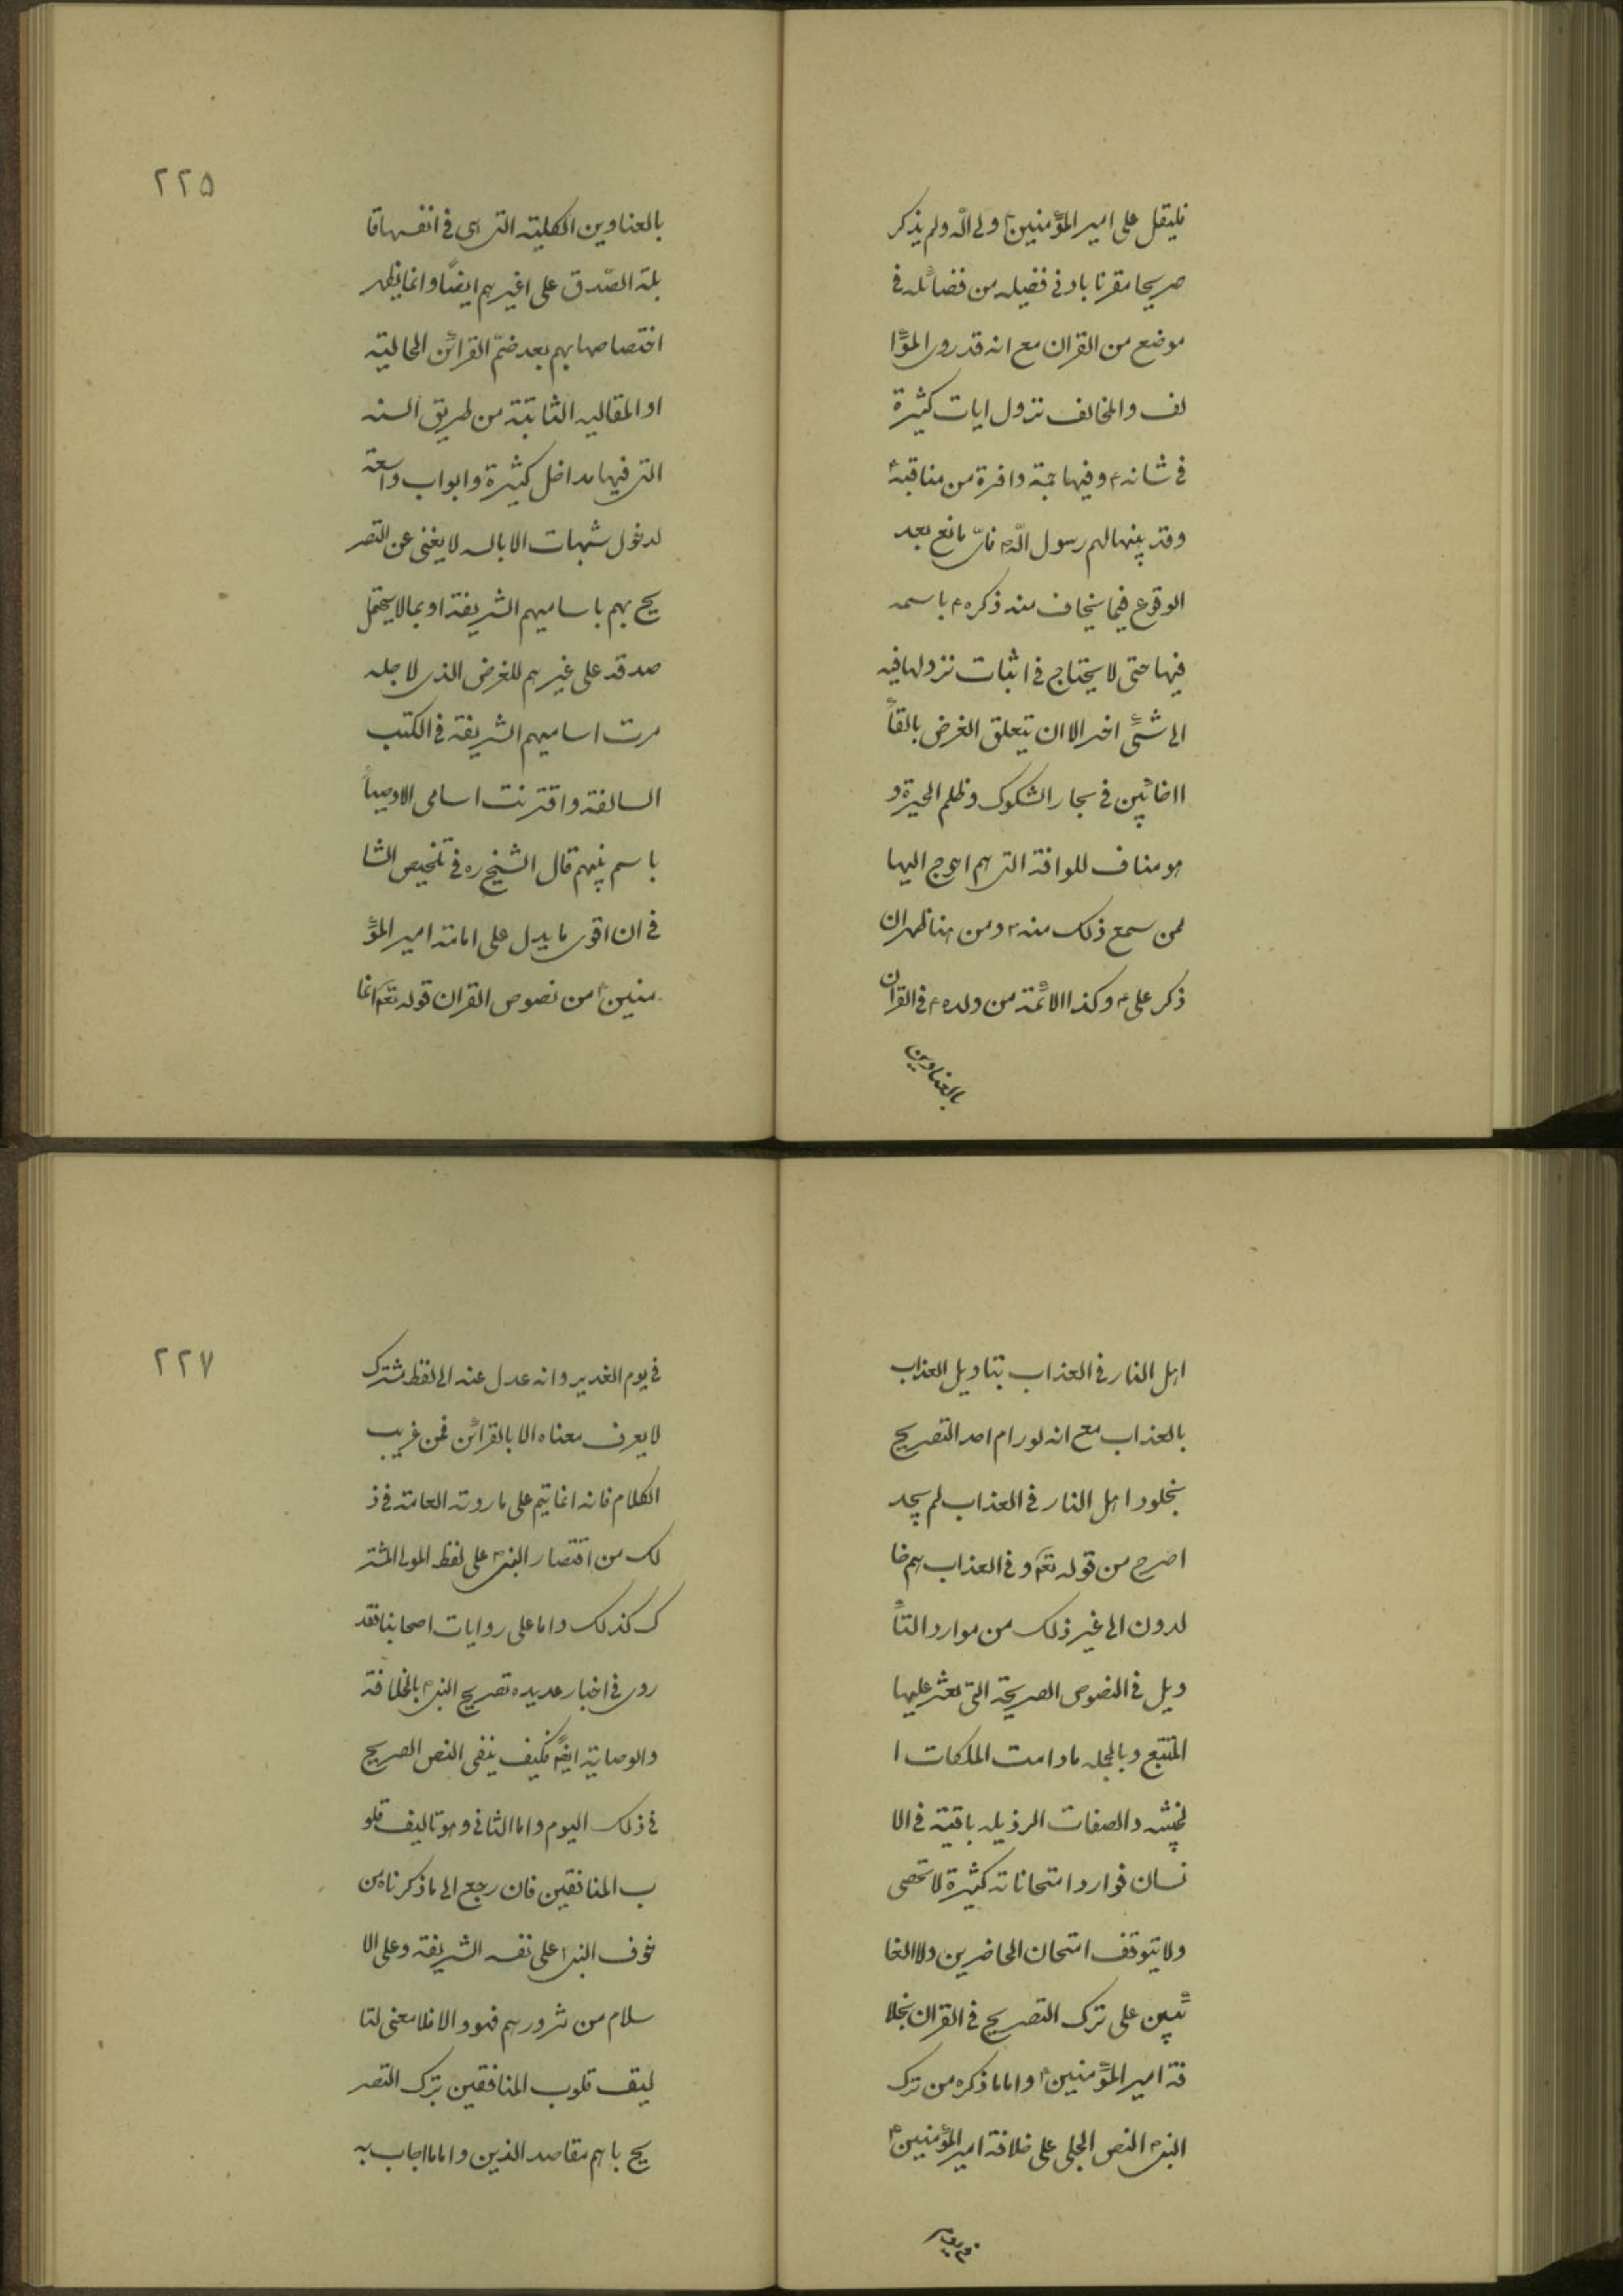 فليقل على امير المؤمنين ولى الله ولم يذكر
صريحا مقرنا بادنى فضيله من فضائله فى
موضع من القران مع انه قد روى المؤا
لف والمخالف نزول ايات كثيرة
فى شانه ع وفيها جمة وافرة من مناقبة
وقد بينها لهم رسول الله ص فاى مانع بعد
الوقوع فيما يخاف منه ذكره ع باسمه
فيها حتى لا يحتاج فى اثبات نزولها فيه
الى شئ اخر الا ان يتعلق الغرض بالقأ
الغائبين فى بحار الشكوك وظلم الحيرة و
هو مناف للرافة التى هم احوج اليها
ممن سمع ذلك منه ص ومن هنا ظهر ان
ذكر على ع وكذا الائمة من ولده ع فى القران
بالعناوين
٢٢٥
بالعناوين الكلية التى هى فى انفسها قا
بلة الصّدق على اغيرهم ايضًا وانما يظهر
اختصاصها بهم بعد ضمّ القرائن الحالية
او المقاليه الثابتة من طريق السنه
التى فيها مداخل كثيرة وابواب واسعة
لدخول شبهات الابالسه لا يغنى عن التصر
يح بهم باساميهم الشريفة او بما لا يحتمل
صدقه على غيرهم للغرض الذى لاجله
مرت اساميهم الشريفة فى الكتب
السالفة واقترنت اسامى الاوصيأ
باسم نبيهم قال الشيخ ره فى تلخيص الشا
فى ان اقوى ما يدل على امامة امير المؤ
منين ع من نصوص القران قوله تعم انما
اهل النار فى العذاب بتاويل العذاب
بالعذاب مع انه لو رام احد التصريح
بخلود اهل النار فى العذاب لم يجد
اصرح من قوله تعم وفى العذاب هم خا
لدون الى غير ذلك من موارد التأ
ويل فى النصوص الصريحة التى يعثر عليها
المتتبع وبالجمله مادامت الملكات ا
لخبيثه والصفات الرذيله باقية فى الا
نسان فوارد امتحاناته كثيرة لا تحصى
ولا يتوقف امتحان الحاضرين ولا الغا
ئبين على ترك التصريح فى القران بخلا
فة امير المؤمنين ع واما ما ذكره من ترك
النبى ص النص الجلى على خلافة امير المؤمنين ع
فى يوم
٢٢٧
فى يوم الغدير وانه عدل عنه الى لفظ مشترك
لا يعرف معناه الا بالقرائن فمن غريب
الكلام فانه انما يتم على ما روته العامة فى ذ
لك من اقتصار النبى ص على لفظ المولى المشتر
ك كذلك واما على روايات اصحابنا فقد
روى فى اخبار عديده تصريح النبى ص بالخلافة
والوصاية ايضً فكيف ينفى النص الصريح
فى ذلك اليوم واما الثانى وهو تاليف قلو
ب المنافقين فان رجع الى ما ذكرناه من
خوف النبى ص على نفسه الشريفة وعلى الا
سلام من شرورهم فهو والا فلا معنى لتا
ليف قلوب المنافقين بترك التصر
يح باهم مقاصد الدين واما ما اجاب به